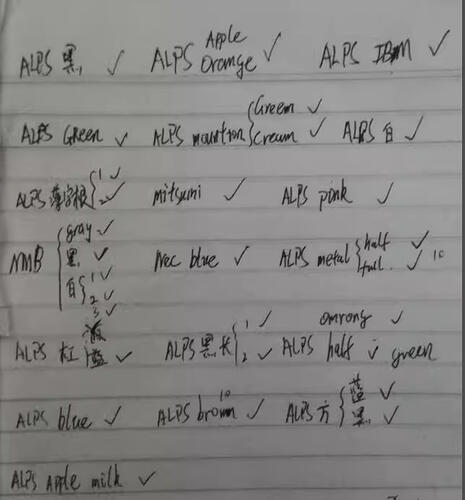 ALPS 黑 ✓ ALPS Apple Orange ✓ ALPS IBM ✓
ALPS Green ✓ ALPS mountion { Green ✓ Cream ✓ ALPS 白 ✓
ALPS 薄字根 { 1 ✓ 2 ✓ mitsumi ✓ ALPS pink ✓
NMB { gray ✓ 黑 ✓ 白 { 1 ✓ 2 ✓ 3 ✓ Nec blue ✓ ALPS metal { half ✓ full ✓ 10
ALPS 杠 蓝 ✓ ALPS 黑长 { 1 ✓ 2 ✓ omrong ✓ ALPS half ✓ green
ALPS blue ✓ ALPS brown 10 ✓ ALPS 方 { 蓝 ✓ 黑 ✓
ALPS Apple milk ✓